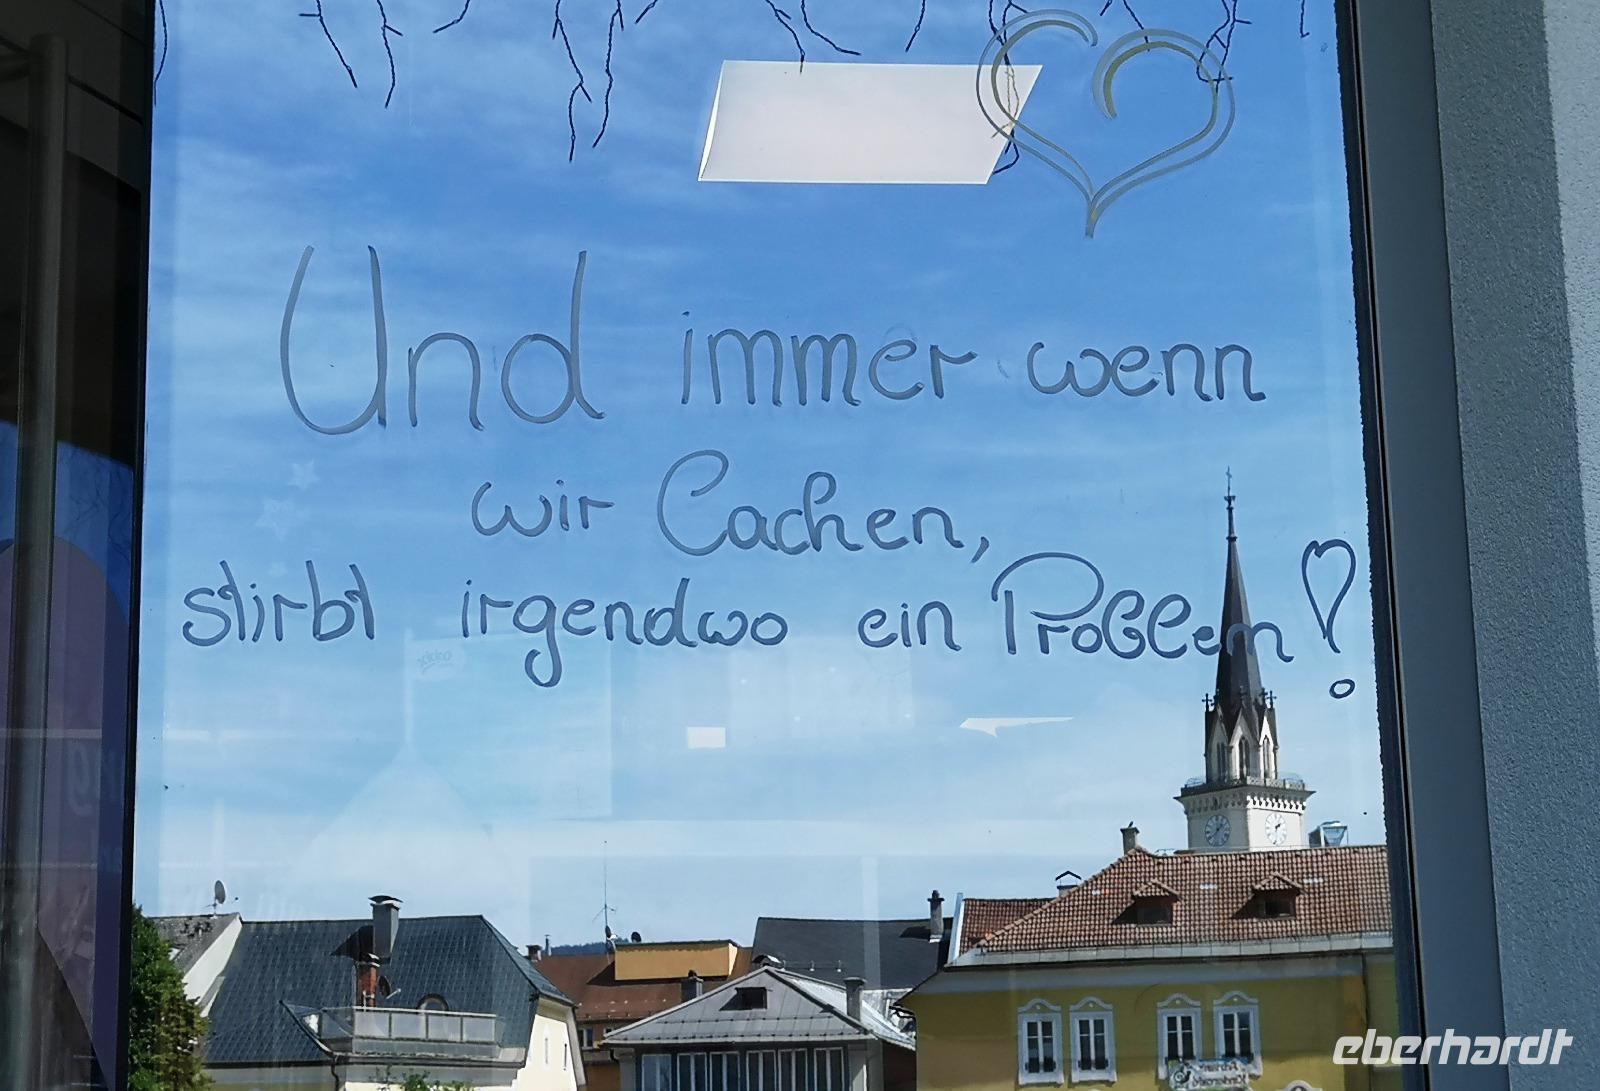 Und immer wenn
wir Lachen,
stirbt irgendwo ein Problem!
eberhardt